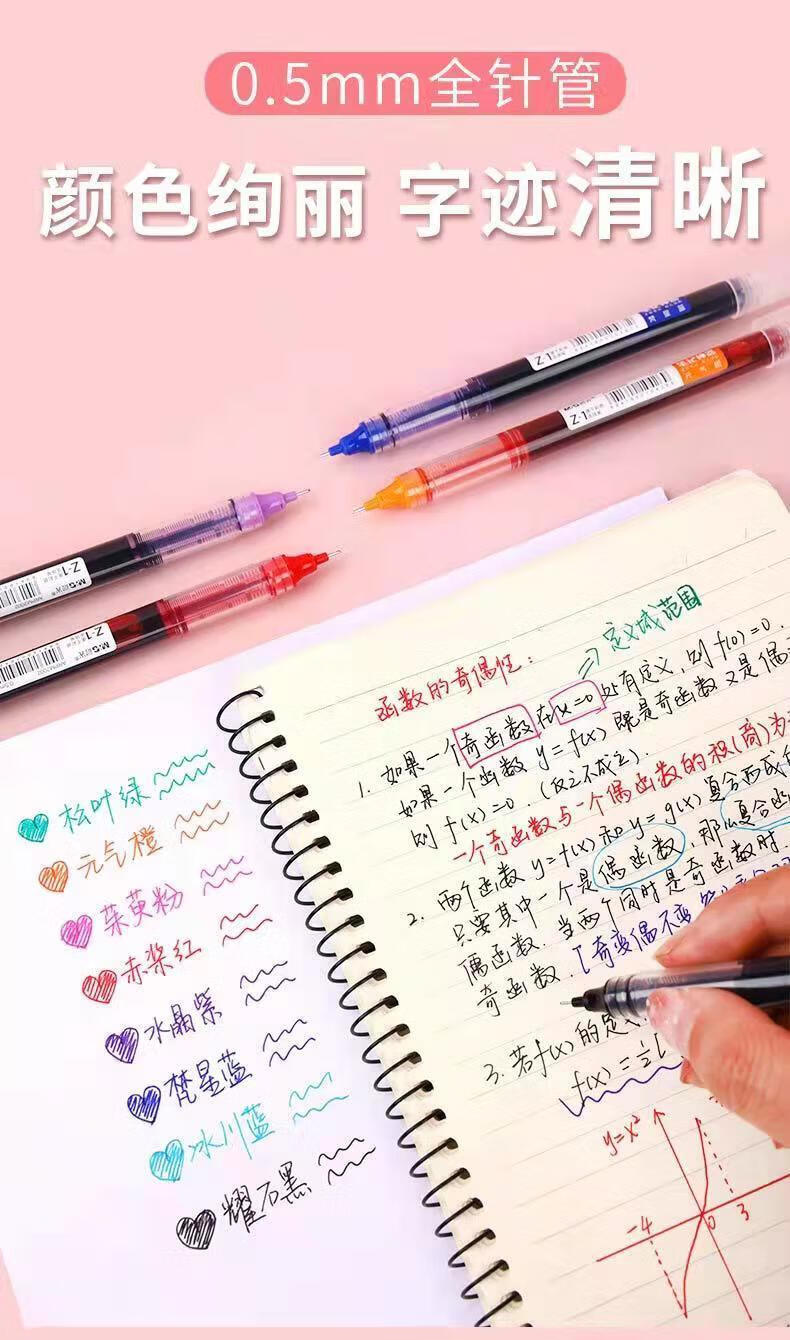 0.5mm全针管
颜色绚丽 字迹清晰
Z-1
M&G
Z-1
M&G
Z-1
M&G
Z-1
函数的奇偶性:
定义域范围
1. 如果一个奇函数在x=0处有定义,则f(0)=0.
如果一个函数y=f(x)既是奇函数又是偶
则f(x)=0.(反之不成立).
一个奇函数与一个偶函数的积(商)为
2. 两个函数y=f(x)和y=g(x)复合而成的
只要其中一个是偶函数,那么复合
偶函数.当两个同时是奇函数时.
奇函数.[奇变偶不变
3. 若f(x)的定
f(x)=½[
y=x²
-4 0 3
松叶绿
元气橙
茱萸粉
赤桨红
水晶紫
梵星蓝
冰川蓝
耀石黑